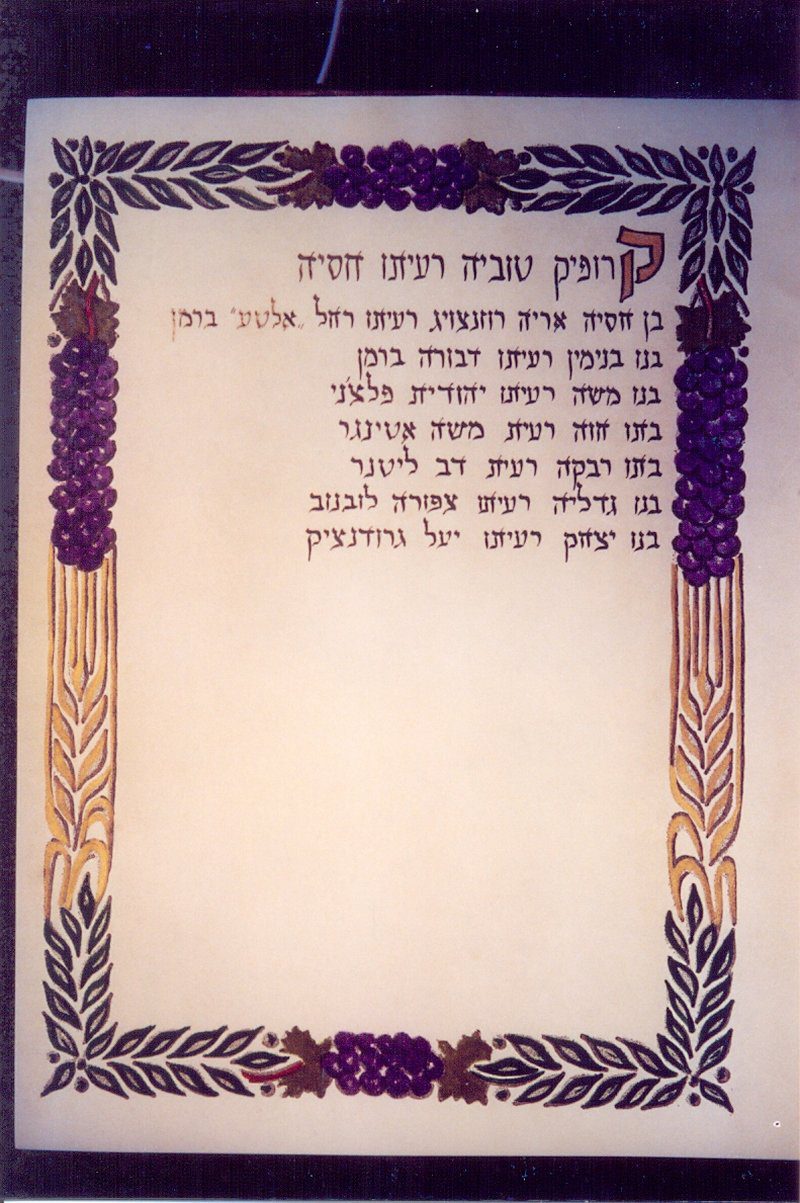 קרופיק טוביה רעיתו חסיה
בן חסיה אריה רוזנצויג רעיתו רחל „אלטע״ ברמן
בנו בנימין רעיתו דבורה ברמן
בנו משה רעיתו יהודית פלצ'ני
בתו חוה רעית משה אטינגר
בתו רבקה רעית דב ליטנר
בנו גדליה רעיתו צפורה לובנוב
בנו יצחק רעיתו יעל גרודנציק